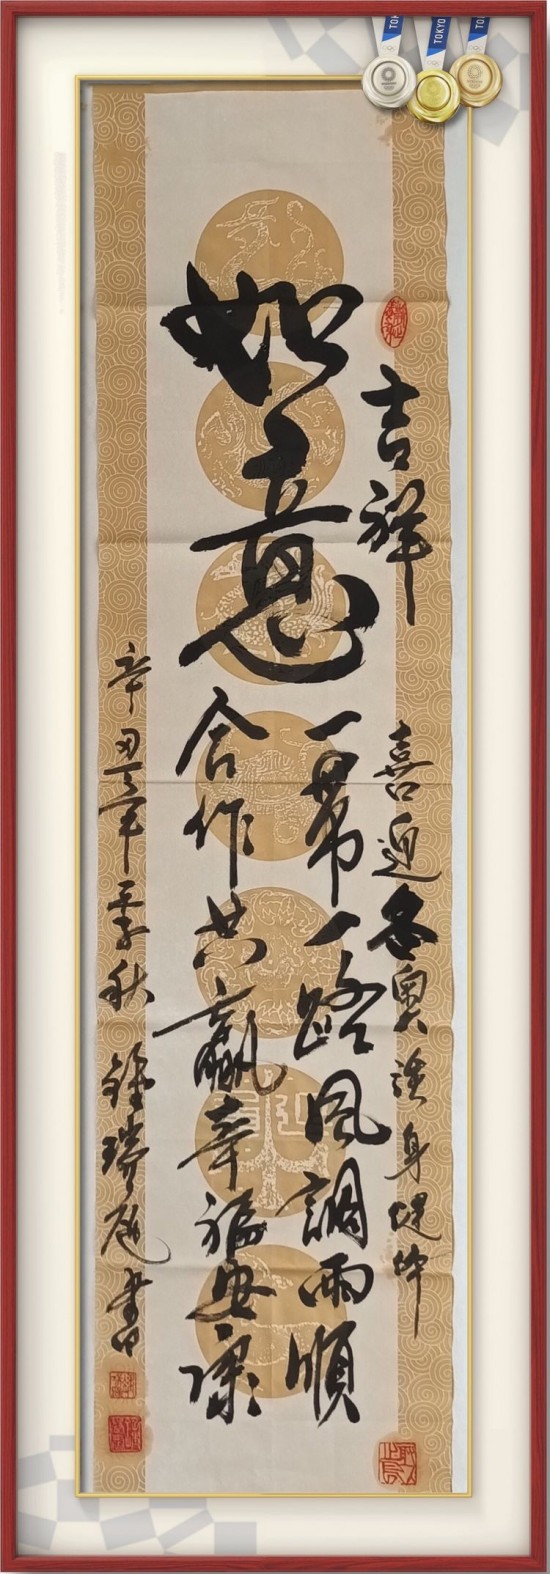 TOKYO
吉祥 喜迎冬奥强身健体
如意
一帶一路風調雨順
合作共赢幸福安康
辛丑年季秋 鍾瑞庭書